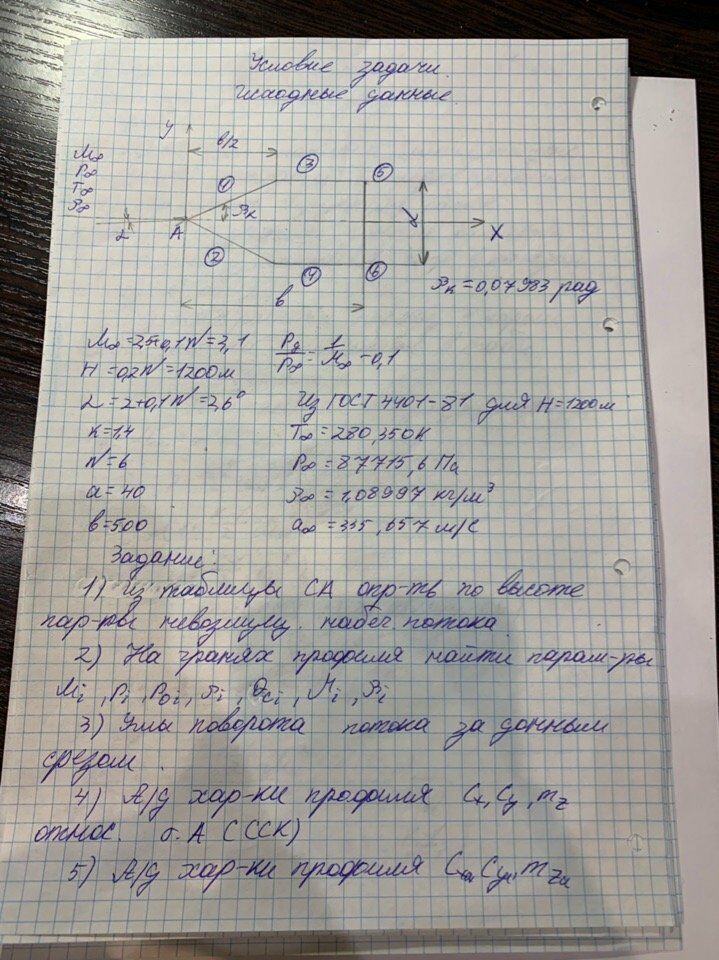 Условие задачи.
Исходные данные.
y
в/2
M∞
P∞
T∞
ρ∞
α
A
βк
1
2
3
4
5
6
a
X
в
βк=0,07983 рад
M∞=2,5+0,1N=3,1
H=0,2N=1200м
α=2+0,1N=2,6°
к=1,4
N=6
a=40
в=500
Pд/P∞=1/M∞-0,1
Из ГОСТ 4401-81 для H=1200м
T∞=280,350К
P∞=87715,6 Па
ρ∞=1,08997 кг/м³
a∞=335,657 м/с
Задание:
1) Из таблицы СА опр-ть по высоте
пар-ры невозмущ. набег. потока.
2) На гранях профиля найти парам-ры
Mi, Pi, P0i, ρi, Θci, μi, βi
3) Углы поворота потока за донным
срезом.
4) А/д хар-ки профиля Cx, Cy, mz
относ. т. А (ССК)
5) А/д хар-ки профиля Cxa Cya mza